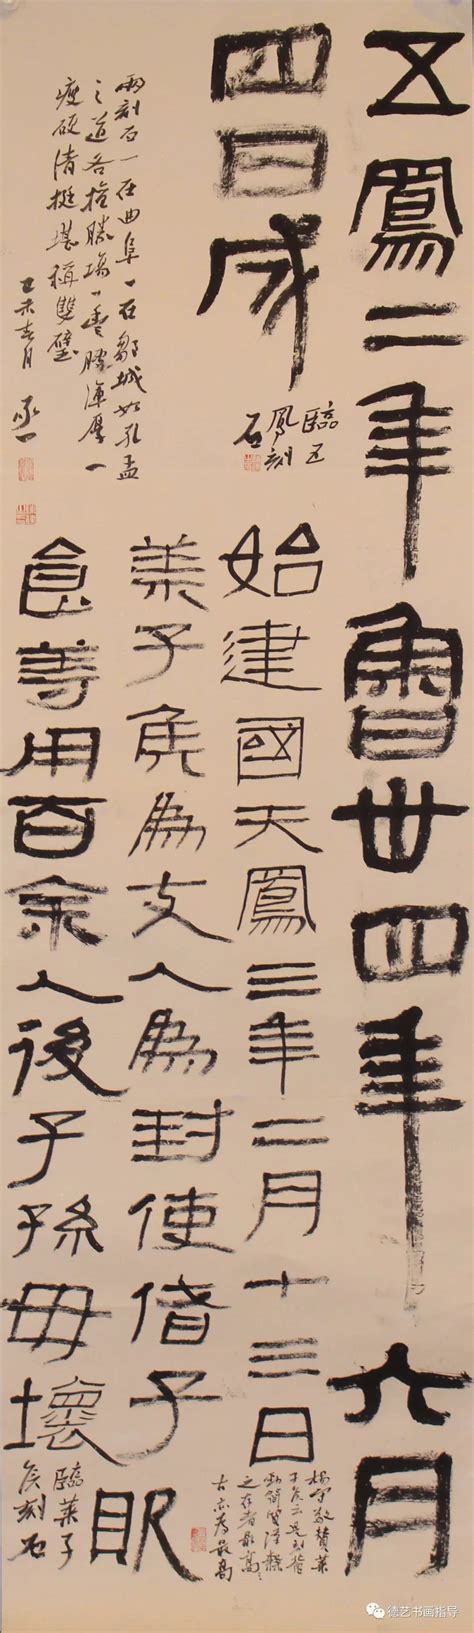 五鳳二年魯卅四年六月
四日成
臨五
鳳刻
石
兩刻石一在曲阜一石鄒城如孔孟
之道各擅勝場一重勝渾厚一
瘦硬清挺堪稱雙璧
乙未春月
始建國天鳳三年二月十三日
萊子侯為支人為封使偖子
食等用百余人後子孫毋壞
敗
楊守敬贊萊
子侯云是刻蒼
勁簡質漢隸
之存者最高
古亦為最高
臨萊子
侯刻石
德艺书画指导